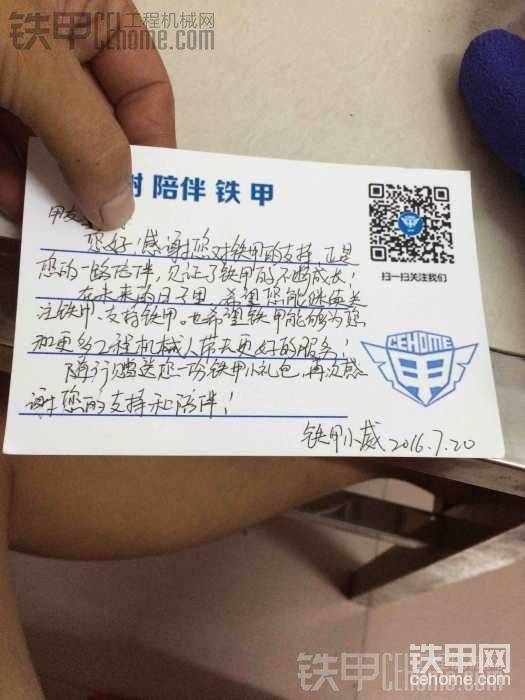 铁甲 工程机械网
CEhome.com
谢 陪伴 铁甲
甲友
您好！感谢您对铁甲的支持，正是
您的一路陪伴，见证了铁甲的不断成长！
在未来的日子里，希望您能继续关
注铁甲、支持铁甲。也希望铁甲能够为您
和更多工程机械人带来更好的服务！
随行赠送您一份铁甲小礼包，再次感
谢您的支持和陪伴！
铁甲小威 2016.7.20
扫一扫关注我们
CEHOME
铁甲 工程机械网
CEhome.com
铁甲网
cehome.com